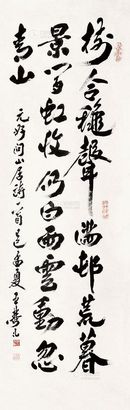 樹合穐聲滿邨荒暮
景閒虹收仍白雨雲動忽
青山
元好問山居詩一首